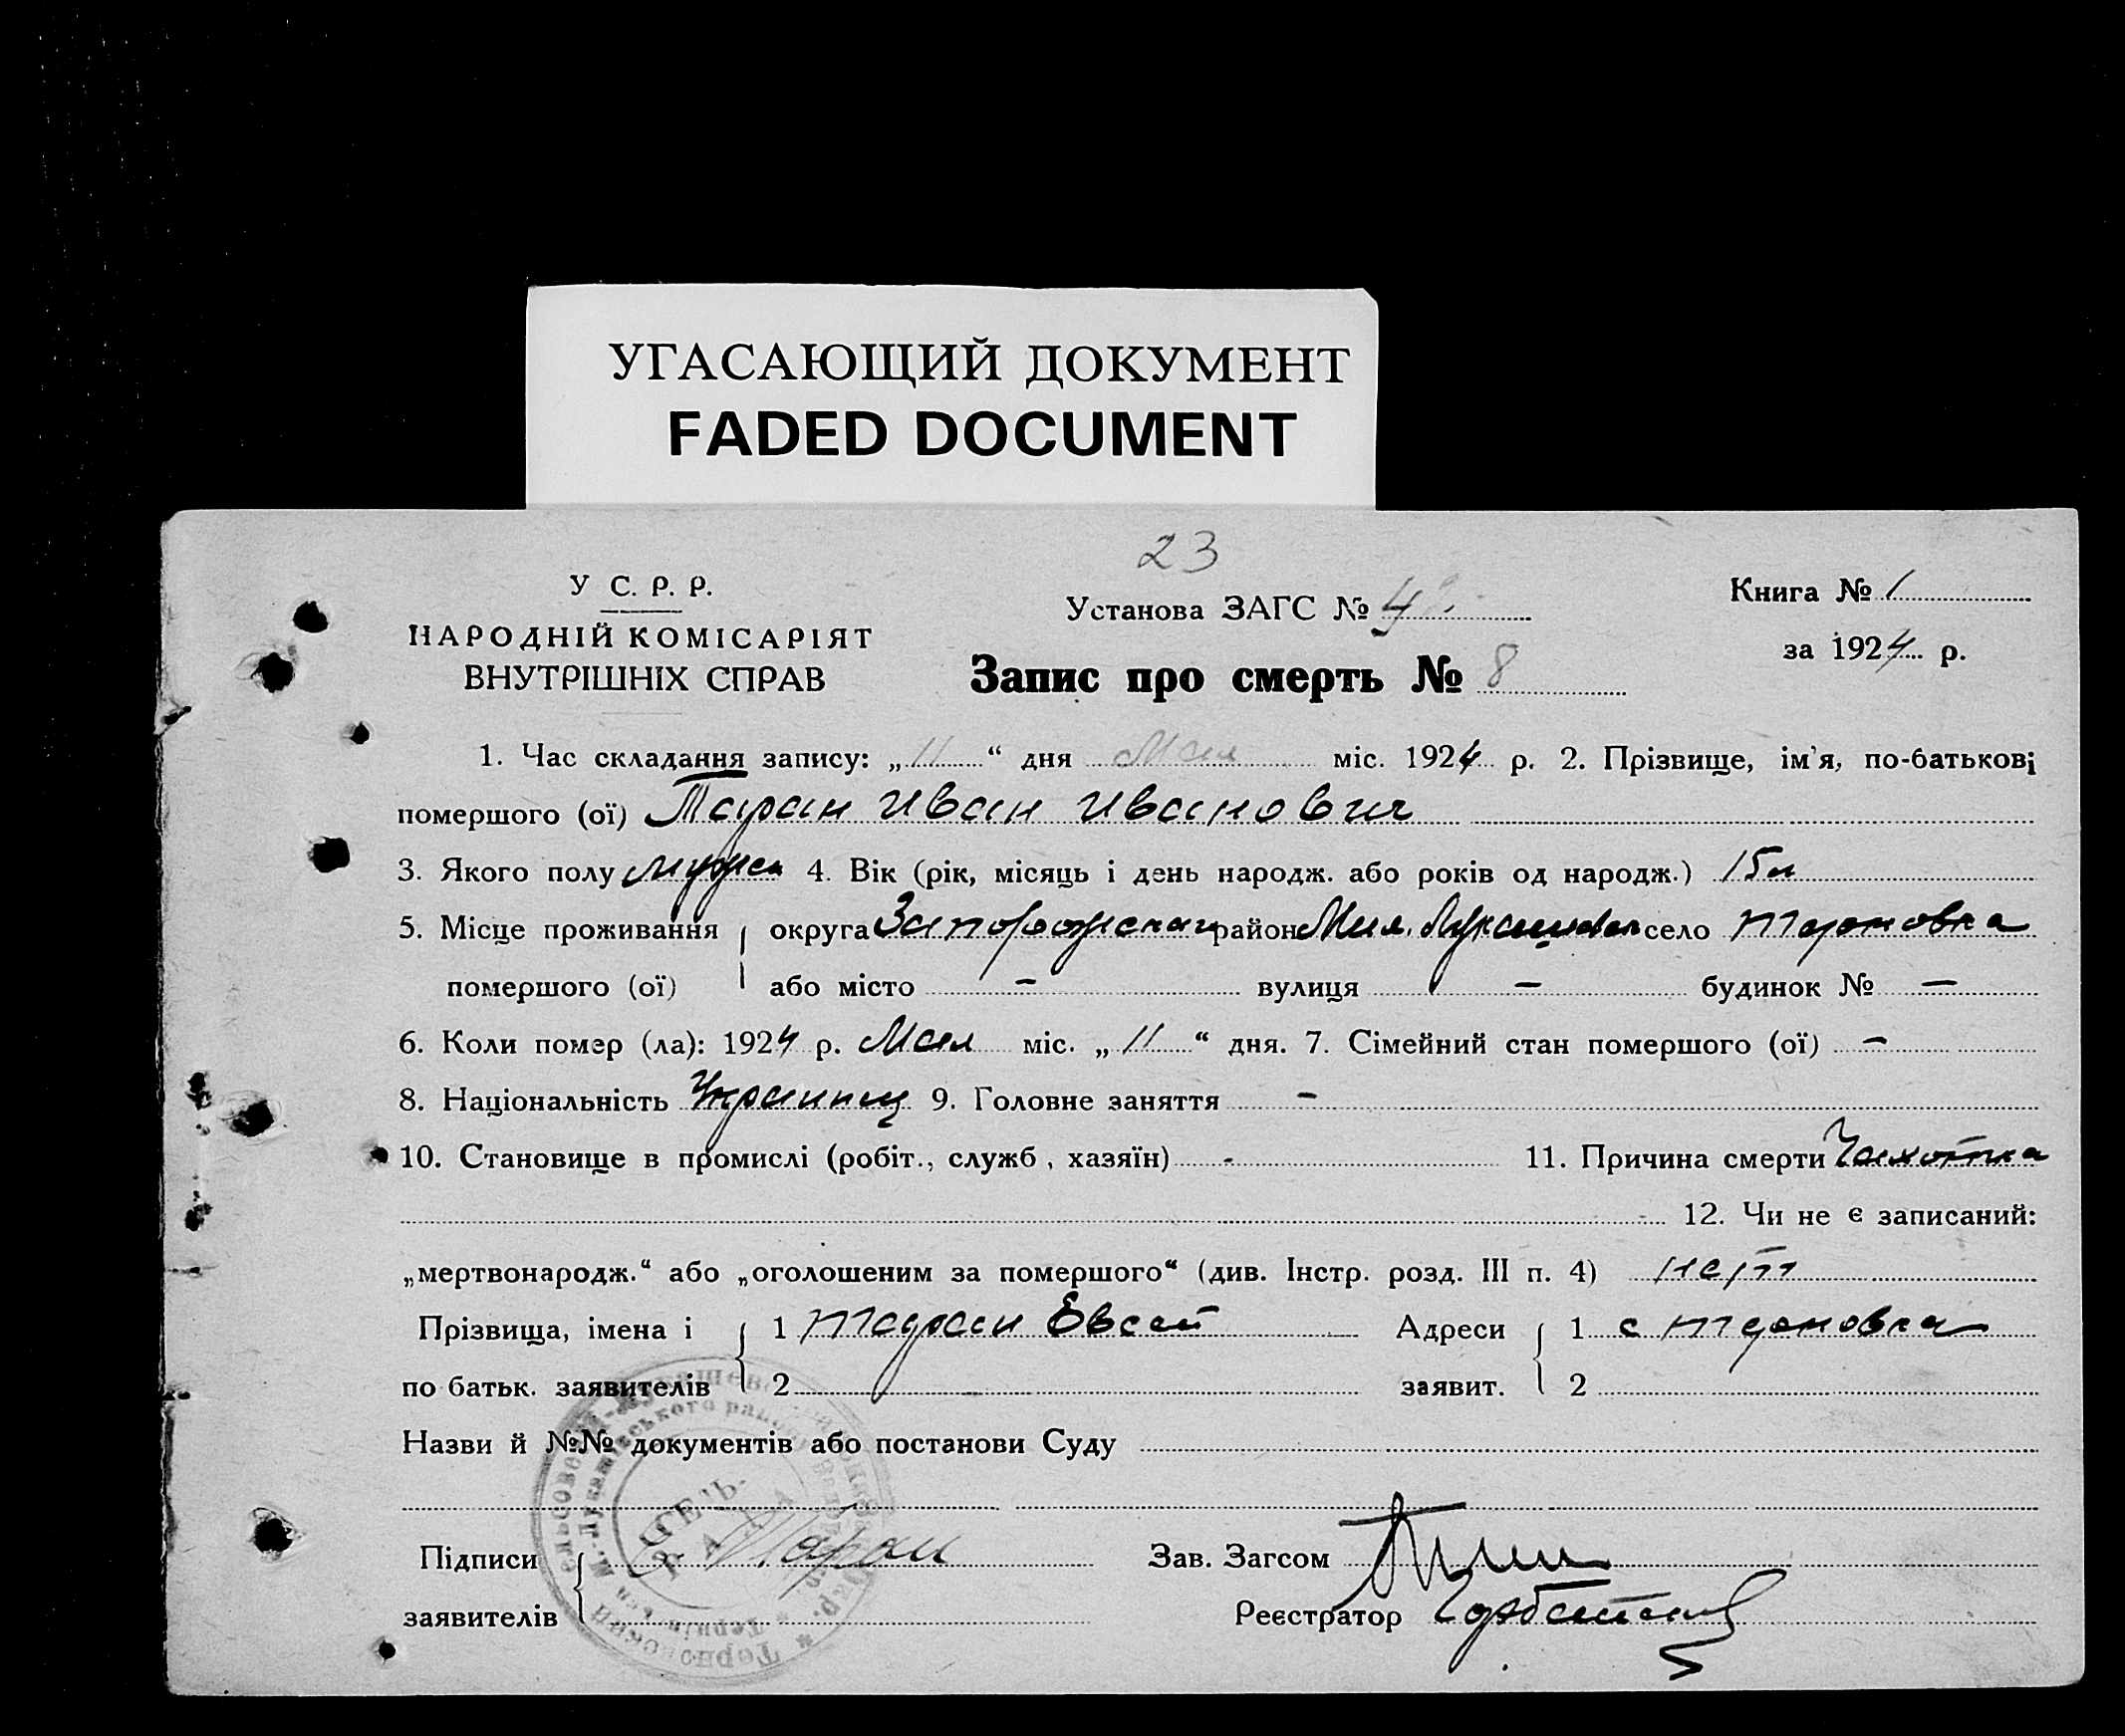 УГАСАЮЩИЙ ДОКУМЕНТ
FADED DOCUMENT
23
У С. Р. Р.
НАРОДНІЙ КОМІСАРІЯТ
ВНУТРІШНІХ СПРАВ
Установа ЗАГС № 4
Запис про смерть № 8
Книга № 1
за 1924 р.
1. Час складання запису: „11“ дня Мая міс. 1924 р. 2. Прізвище, ім'я, по-батькові
помершого (ої) Таран Иван Иванович
3. Якого полу мужск 4. Вік (рік, місяць і день народж. або років од народж.) 15 л
5. Місце проживання округа Запорожская район Мих. Лукашовск село Терновка
помершого (ої) або місто – вулиця – будинок № –
6. Коли помер (ла): 1924 р. Мая міс. „11“ дня. 7. Сімейний стан помершого (ої) –
8. Національність Украинец 9. Головне заняття –
10. Становище в промислі (робіт., служб, хазяїн) - 11. Причина смерти Чахотка
12. Чи не є записаний:
„мертвонародж.“ або „оголошеним за помершого“ (див. Інстр. розд. III п. 4) нет
Прізвища, імена і 1 Таран Евсей Адреси 1 с Терновка
по батьк. заявителів 2 заявит. 2
Назви й №№ документів або постанови Суду
Підписи Таран Зав. Загсом
заявителів Реєстратор